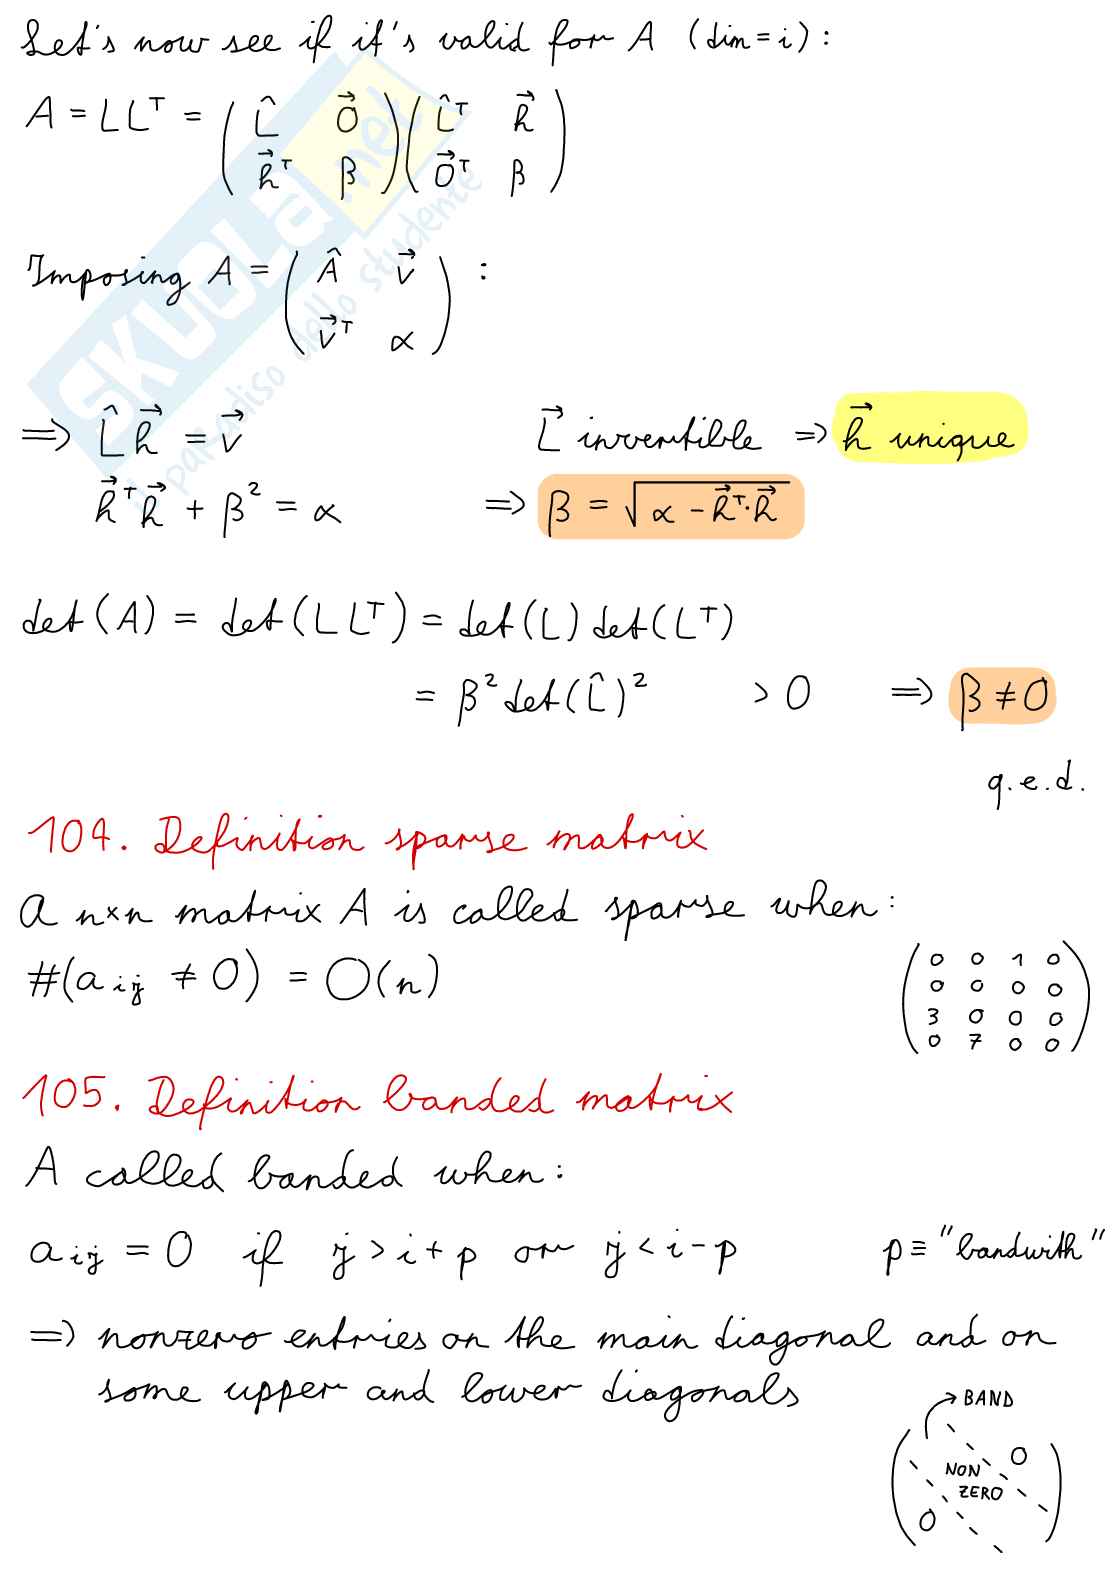 Let's now see if it's valid for A (dim = i) :
A = LLᵀ = ( L̂ 0⃗ ; h⃗ᵀ β ) ( L̂ᵀ h⃗ ; 0⃗ᵀ β )
Imposing A = ( Â v⃗ ; v⃗ᵀ α ) :
⇒ L̂ h⃗ = v⃗ L⃗ invertible ⇒ h⃗ unique
h⃗ᵀh⃗ + β² = α ⇒ β = √(α - h⃗ᵀ·h⃗)
det(A) = det(LLᵀ) = det(L) det(Lᵀ)
= β² det(L̂)² > 0 ⇒ β ≠ 0
q.e.d.
104. Definition sparse matrix
a n×n matrix A is called sparse when:
#(aij ≠ 0) = O(n)
0 0 1 0
0 0 0 0
3 0 0 0
0 7 0 0
105. Definition banded matrix
A called banded when:
aij = 0 if j > i + p or j < i - p p ≡ "bandwith"
⇒ nonzero entries on the main diagonal and on
some upper and lower diagonals
→ BAND
NON 0
ZERO
0
SKUOLA.net
il paradiso dello studente